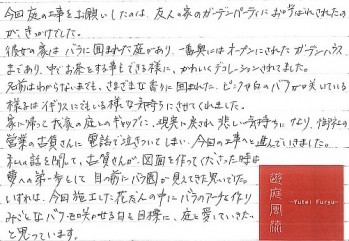 今回庭の工事をお願いしたのは、友人の家のガーデンパーティにお呼ばれされたの
が、きっかけでした。
彼女の家はバラに囲まれた庭があり、一番奥にはオープンにされたガーデンハウス
まであり、中でお茶をする事もできる様に、かわいくデコレーションされてました。
名前はわからないまでも、さまざまな香りに囲まれ、ピンクや白のバラが咲いている
様子はイギリスにでもいる様な気持ちにさせてくれました。
家に帰って我家の庭とのギャップに、現実に戻され悲しい気持ちになり、御社の
営業の古賀さんに電話で泣きついてしまい、今回の工事へと進んでいきました。
私の話を聞いて、古賀さんが、図面を作ってくださった時は
夢への第一歩として目の前にバラ園が見えてきた思いでした。
いずれは、今回施工した花だんの中にバラのアーチを作り
みごとなバラを咲かせる日を目標に、庭と愛していきたい
と思っています。
遊庭風流
-Yutei Furyu-